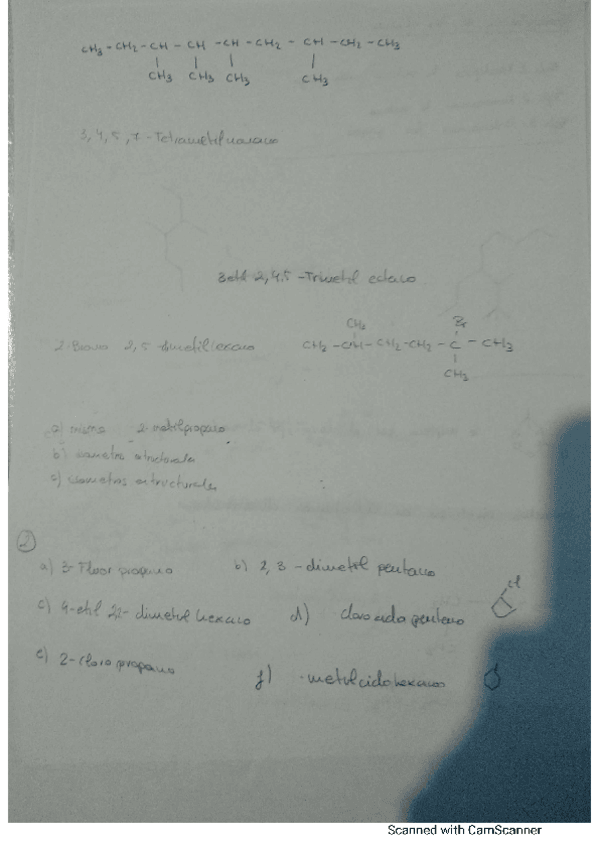 CH3 - CH2 - CH - CH - CH - CH2 - CH - CH2 - CH3
CH3 CH3 CH3 CH3
3, 4, 5, 7 - Tetrametilnonano
3etil 2,4,5 - Trimetil octano
CH3 Br
2-Bromo 2,5 dimetilhexano CH2 - CH - CH2 - CH2 - C - CH3
CH3
a) misma 2-metilpropano
b) isometros estructurales
c) isometros estructurales
2
a) 3-Fluor propano b) 2, 3 - dimetil pentano
c) 4-etil 2,2- dimetil hexano d) cloro ciclo pentano Cl
e) 2-cloro propano f) -metilciclohexano
Scanned with CamScanner